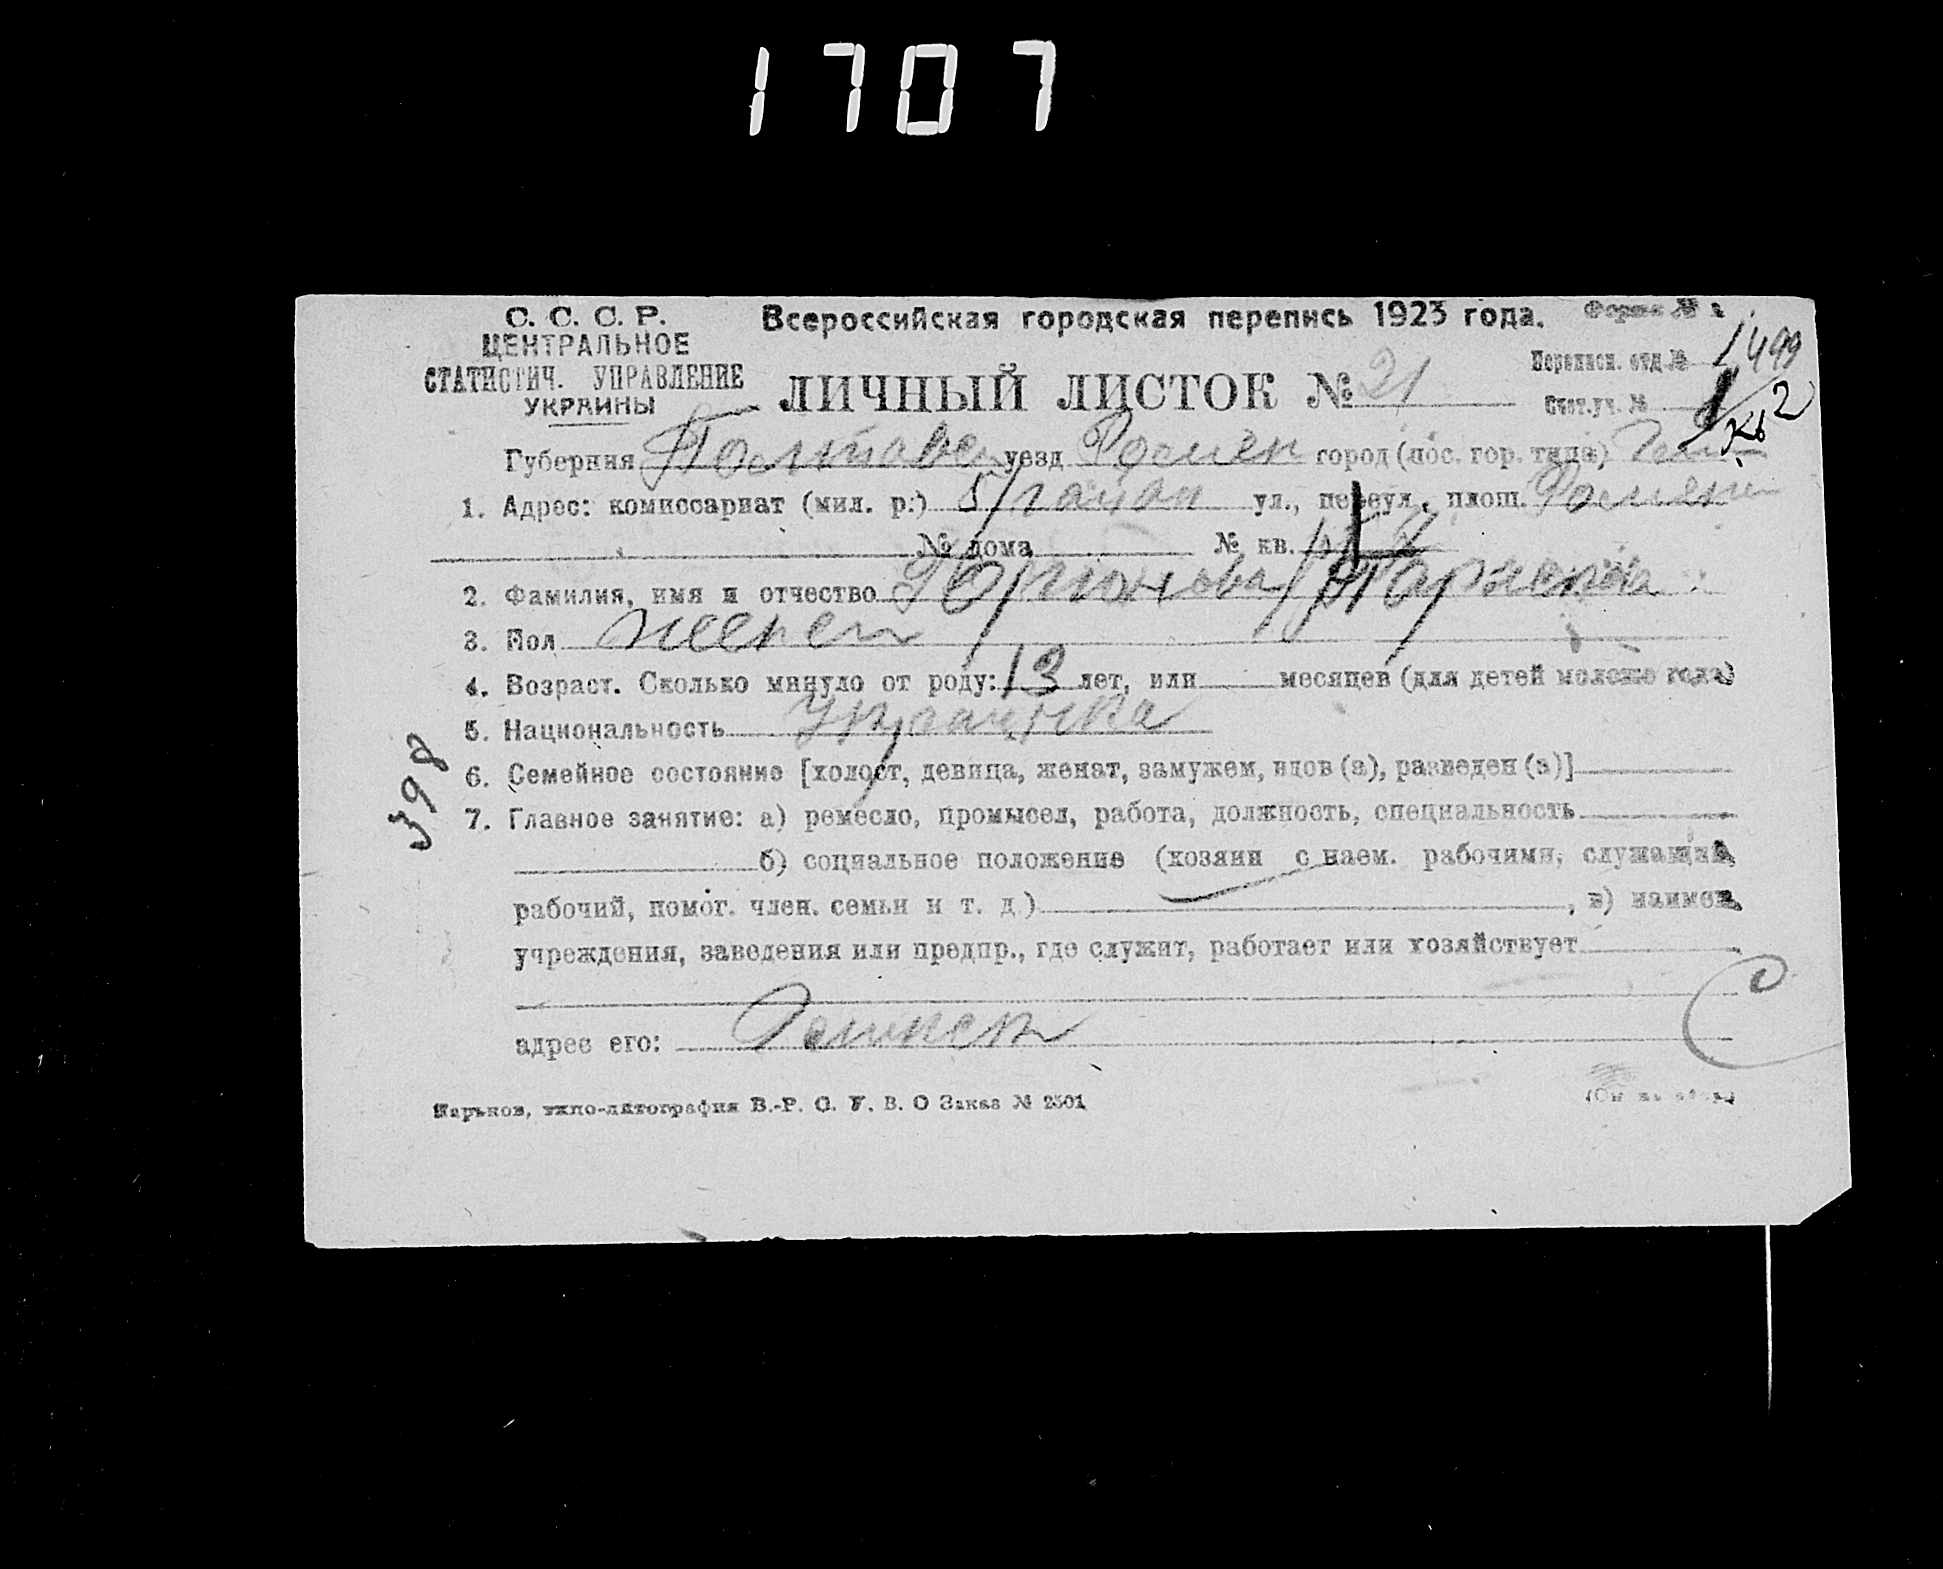 1707
С. С. С. Р.
ЦЕНТРАЛЬНОЕ
СТАТИСТИЧ. УПРАВЛЕНИЕ
УКРАИНЫ
Всероссийская городская перепись 1923 года.
Форма №
ЛИЧНЫЙ ЛИСТОК № 21
Переписн. отд. № 1499
Счет. уч. № 2
Губерния Полтавск уезд Ромен город (пос. гор. типа)
1. Адрес: комиссариат (мил. р.) 5 район ул., переул., площ. Ромен
№ дома № кв.
2. Фамилия, имя и отчество
3. Пол женск
4. Возраст. Сколько минуло от роду: 13 лет, или месяцев (для детей моложе года)
5. Национальность Украинка
6. Семейное состояние [холост, девица, женат, замужем, вдов (а), разведен (а)]
7. Главное занятие: а) ремесло, промысел, работа, должность, специальность
б) социальное положение (хозяин с наем. рабочими, служащий,
рабочий, помог. член. семьи и т. д.) , в) наимен.
учреждения, заведения или предпр., где служит, работает или хозяйствует
адрес его:
398
Харьков, типо-литография В.-Р. С. У. В. О Заказ № 2501